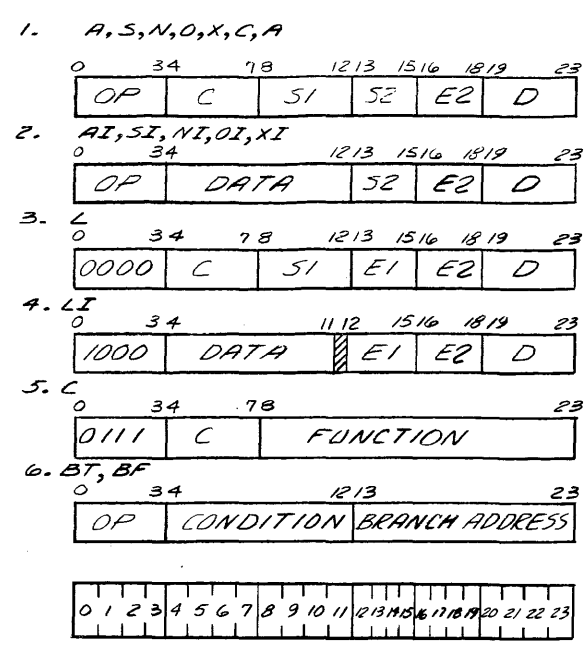 1. A,S,N,O,X,C,A
0 34 78 1213 1516 1819 23
OP C S1 S2 E2 D
2. AI,SI,NI,OI,XI
0 34 1213 1516 1819 23
OP DATA S2 E2 D
3. L
0 34 78 1213 1516 1819 23
0000 C S1 E1 E2 D
4. LI
0 34 1112 1516 1819 23
1000 DATA E1 E2 D
5. C
0 34 78 23
0111 C FUNCTION
6. BT, BF
0 34 1213 23
OP CONDITION BRANCH ADDRESS
0 1 2 3 4 5 6 7 8 9 10 11 12 13 14 15 16 17 18 19 20 21 22 23